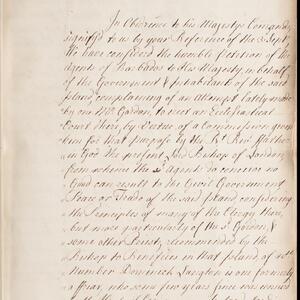 In Obedience to his Majestys Commands
signify'd to us by your Reference of the 3 Sept
We have considered the humble Petition of the
Agents of Barbados to His Majesty, in behalf
of the Government & Inhabitants of the said
Island, complaining of an Attempt lately made
by one Mr Gordon, to erect an Ecclesiastical
Court there, by Vertue of a Commission given
him for that purpose by the Rt Revd Father
in God the present Lord Bishop of London
from whence the sd Agents do conceive no
Good can result to the Civil Government
Peace or Trade of the said Island considering
the Principles of many of the Clergy there,
but more particularly of the sd Gordon, &
some other Priests, recommended by the
Bishop to Benefices in that Island, of
Number Dominick Langton is one formerly
a ffryar, who some few years since was convict